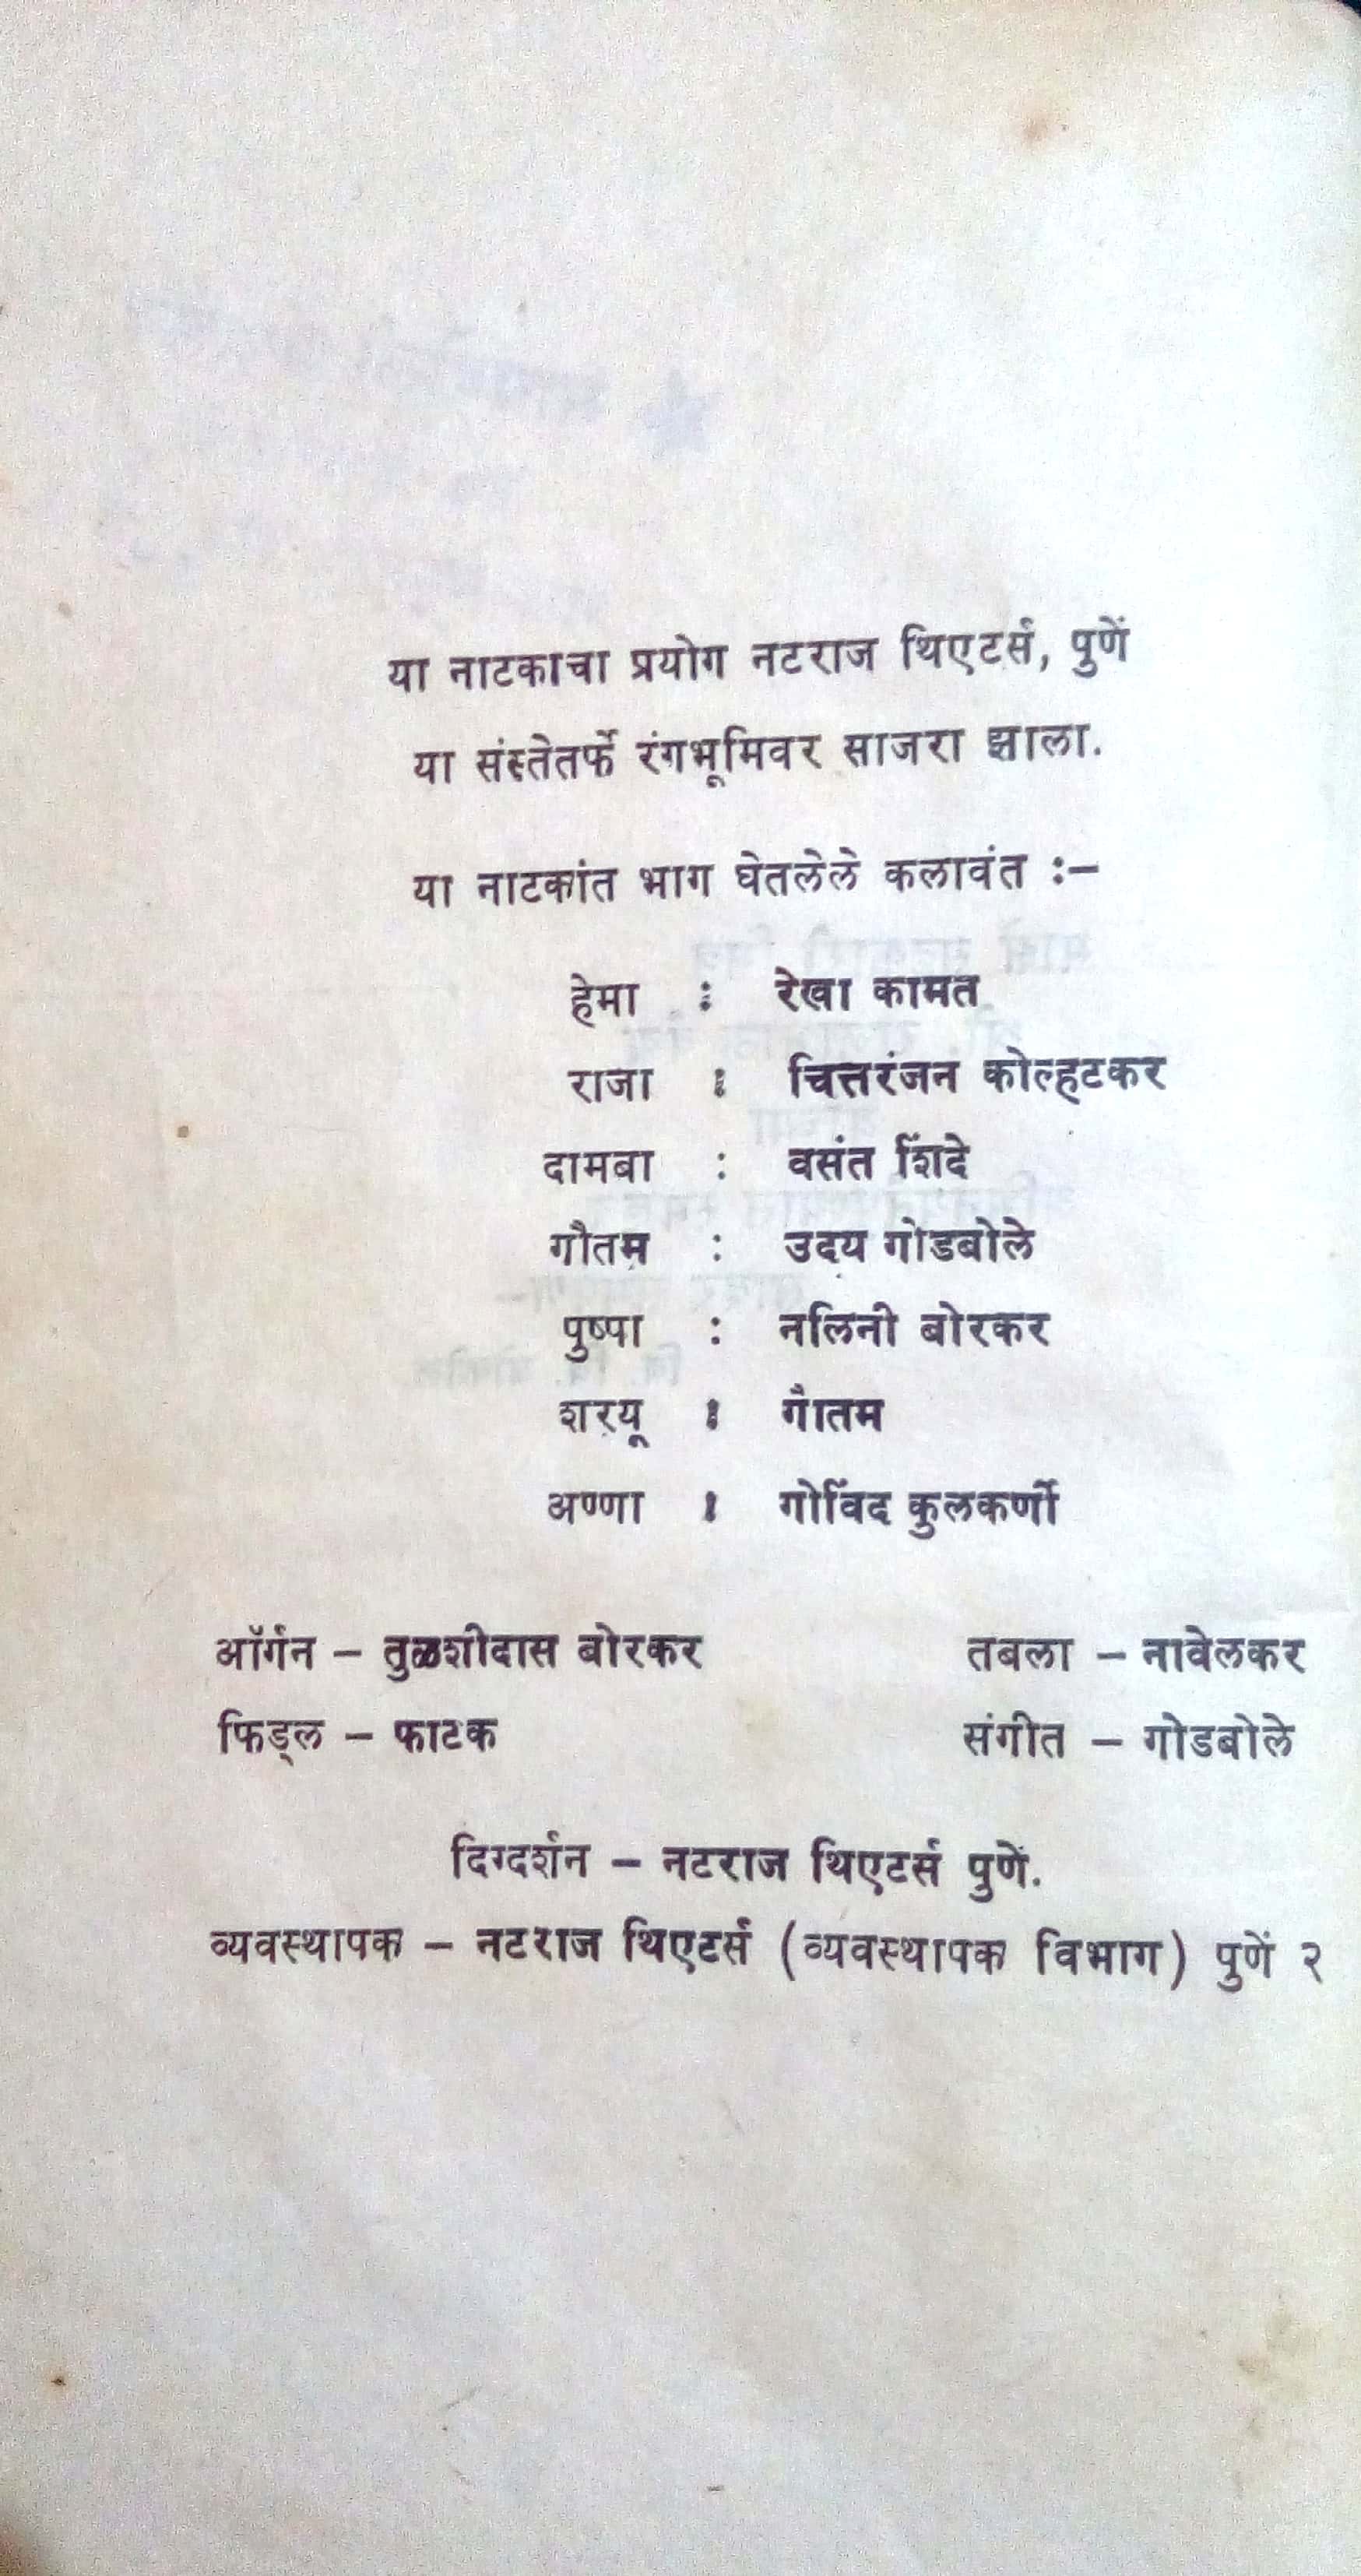 या नाटकाचा प्रयोग नटराज थिएटर्स, पुणें
या संस्तेतर्फे रंगभूमिवर साजरा झाला.
या नाटकांत भाग घेतलेले कलावंत :–
हेमा : रेखा कामत
राजा : चित्तरंजन कोल्हटकर
दामबा : वसंत शिंदे
गौतम : उदय गोडबोले
पुष्पा : नलिनी बोरकर
शरयू : गौतम
अण्णा : गोविंद कुलकर्णी
ऑर्गन – तुळशीदास बोरकर तबला – नावेलकर
फिड्ल – फाटक संगीत – गोडबोले
दिग्दर्शन – नटराज थिएटर्स पुणें.
व्यवस्थापक – नटराज थिएटर्स (व्यवस्थापक विभाग) पुणें २